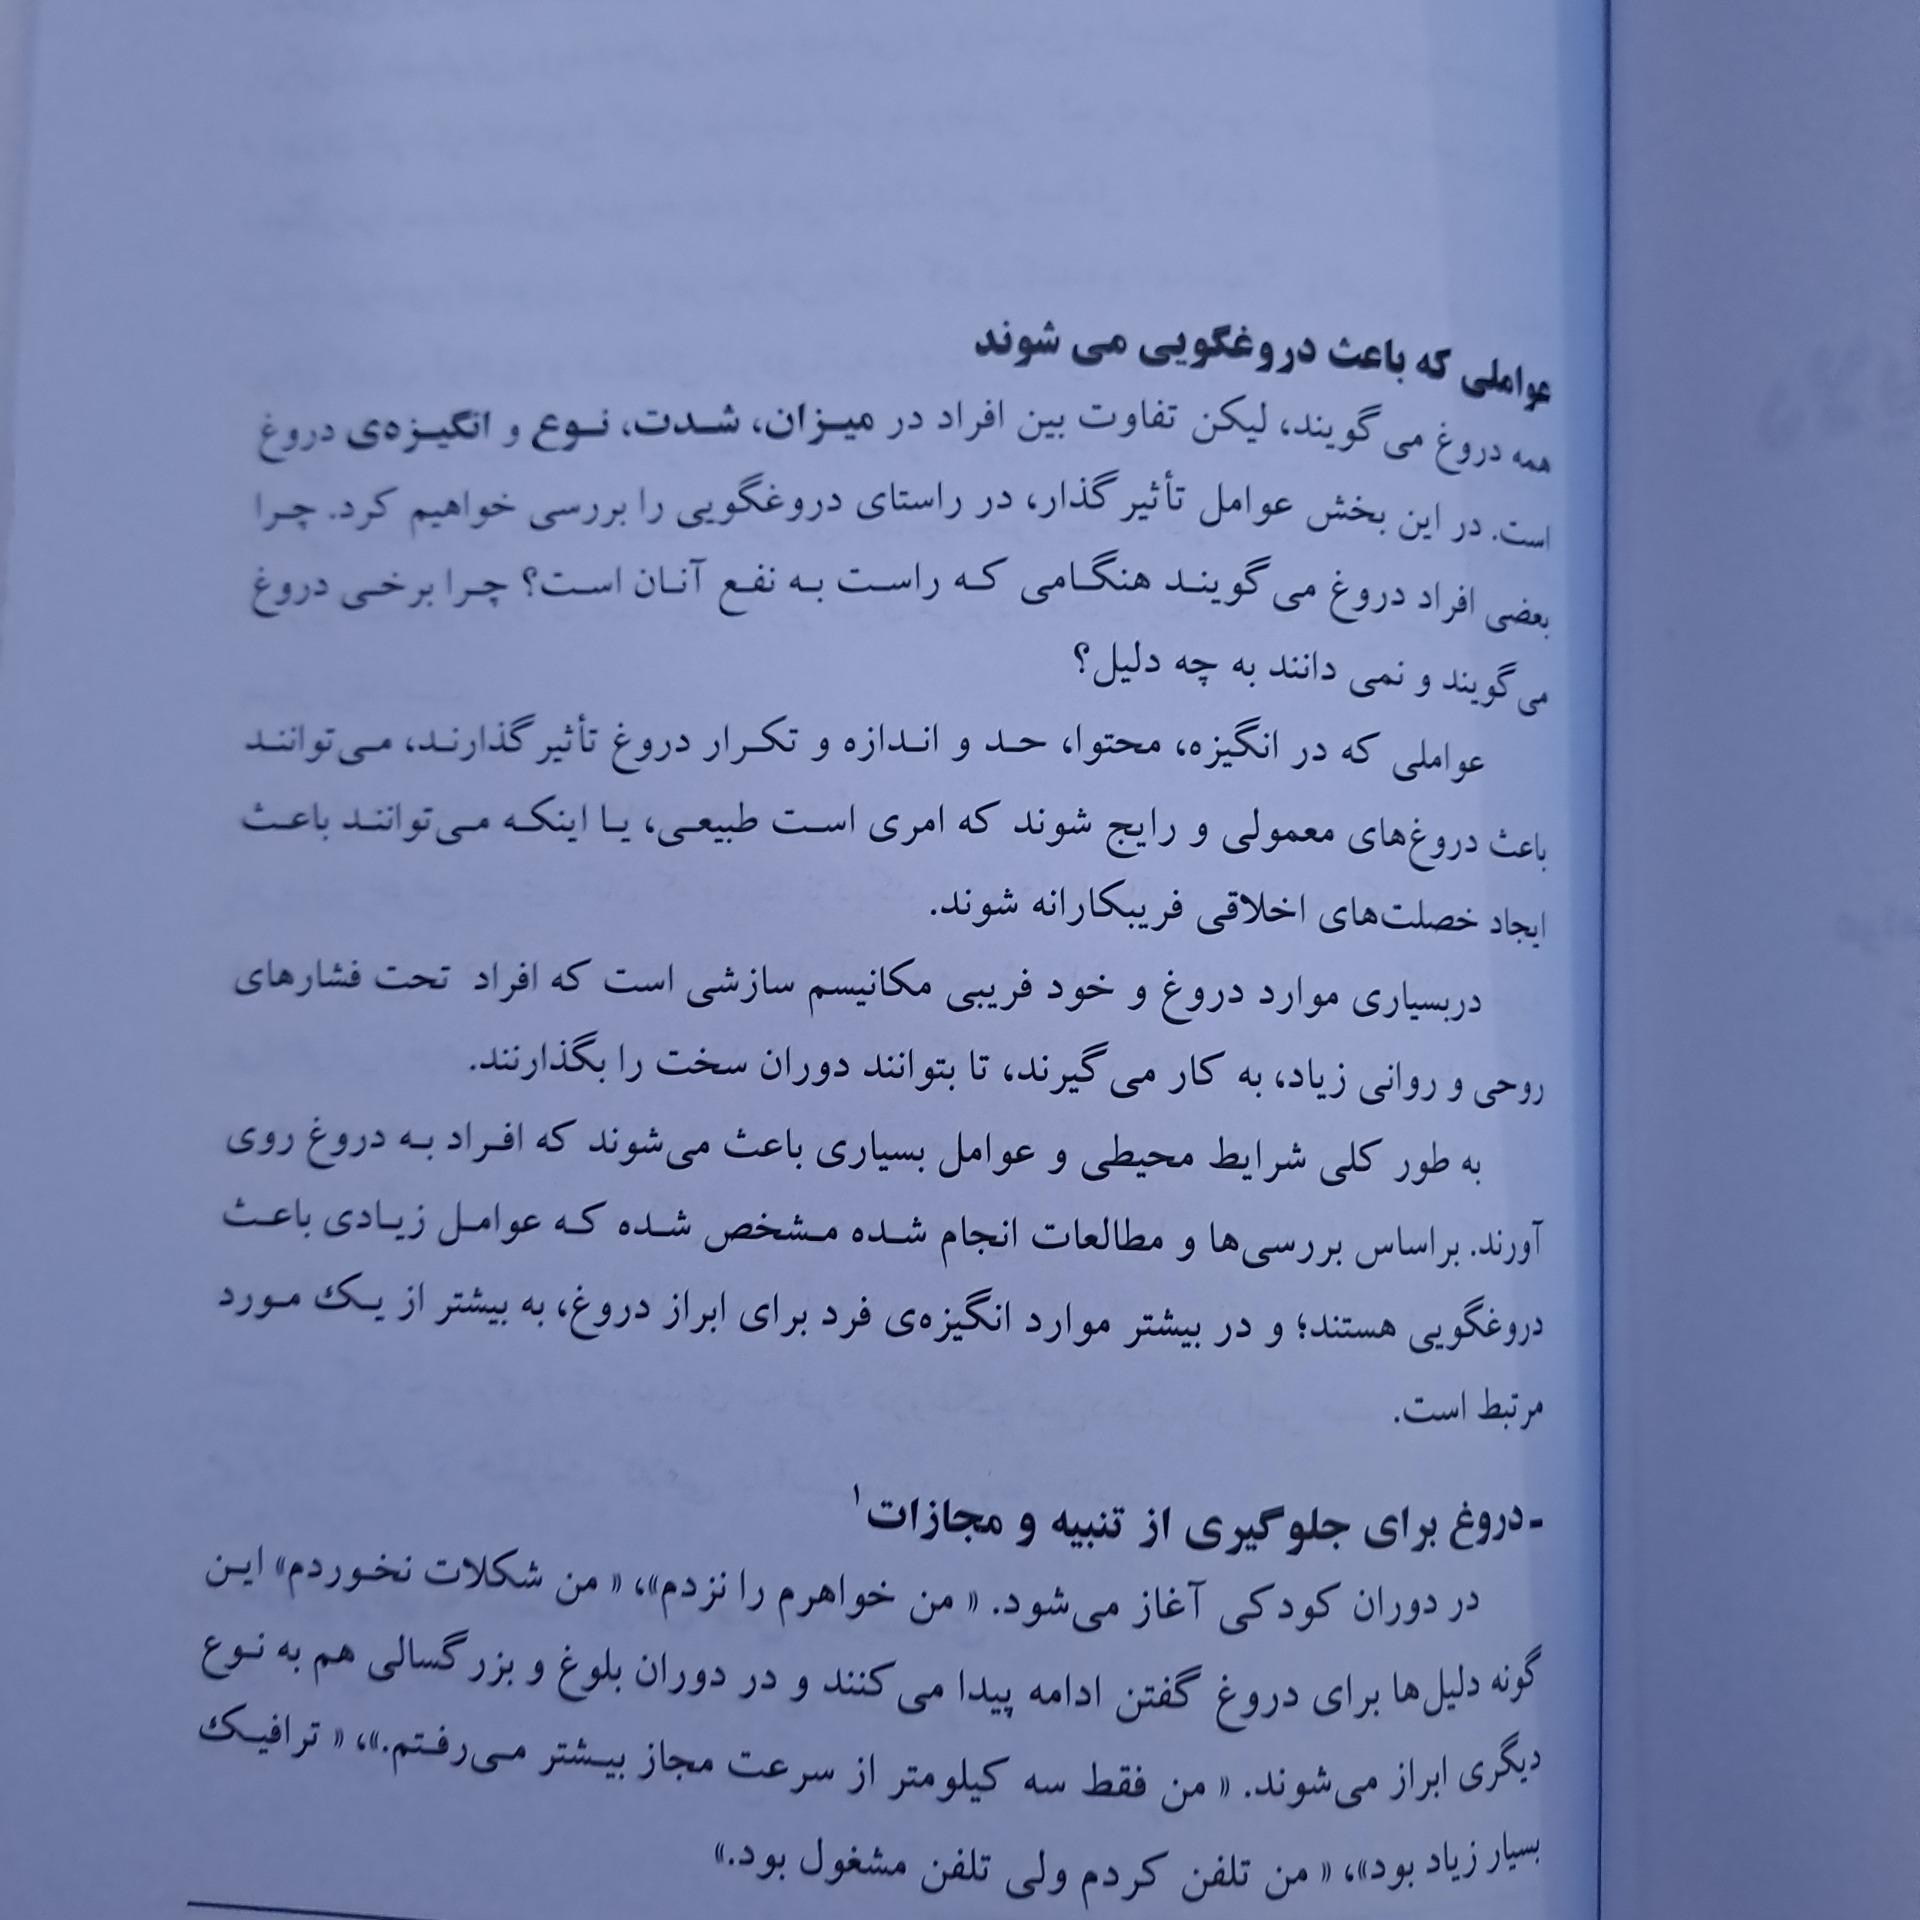 عواملی که باعث دروغگویی می شوند
همه دروغ می‌گویند، لیکن تفاوت بین افراد در میزان، شدت، نوع و انگیزه‌ی دروغ
است. در این بخش عوامل تأثیرگذار، در راستای دروغگویی را بررسی خواهیم کرد. چرا
بعضی افراد دروغ می‌گویند هنگامی که راست به نفع آنان است؟ چرا برخی دروغ
می‌گویند و نمی دانند به چه دلیل؟
عواملی که در انگیزه، محتوا، حد و اندازه و تکرار دروغ تأثیرگذارند، می‌توانند
باعث دروغ‌های معمولی و رایج شوند که امری است طبیعی، یا اینکه می‌توانند باعث
ایجاد خصلت‌های اخلاقی فریبکارانه شوند.
دربسیاری موارد دروغ و خود فریبی مکانیسم سازشی است که افراد تحت فشارهای
روحی و روانی زیاد، به کار می‌گیرند، تا بتوانند دوران سخت را بگذارنند.
به طور کلی شرایط محیطی و عوامل بسیاری باعث می‌شوند که افراد به دروغ روی
آورند. براساس بررسی‌ها و مطالعات انجام شده مشخص شده که عوامل زیادی باعث
دروغگویی هستند؛ و در بیشتر موارد انگیزه‌ی فرد برای ابراز دروغ، به بیشتر از یک مورد
مرتبط است.
-دروغ برای جلوگیری از تنبیه و مجازات۱
در دوران کودکی آغاز می‌شود. « من خواهرم را نزدم»، « من شکلات نخوردم» این
گونه دلیل‌ها برای دروغ گفتن ادامه پیدا می‌کنند و در دوران بلوغ و بزرگسالی هم به نوع
دیگری ابراز می‌شوند. « من فقط سه کیلومتر از سرعت مجاز بیشتر می‌رفتم.»، « ترافیک
بسیار زیاد بود»، « من تلفن کردم ولی تلفن مشغول بود.»